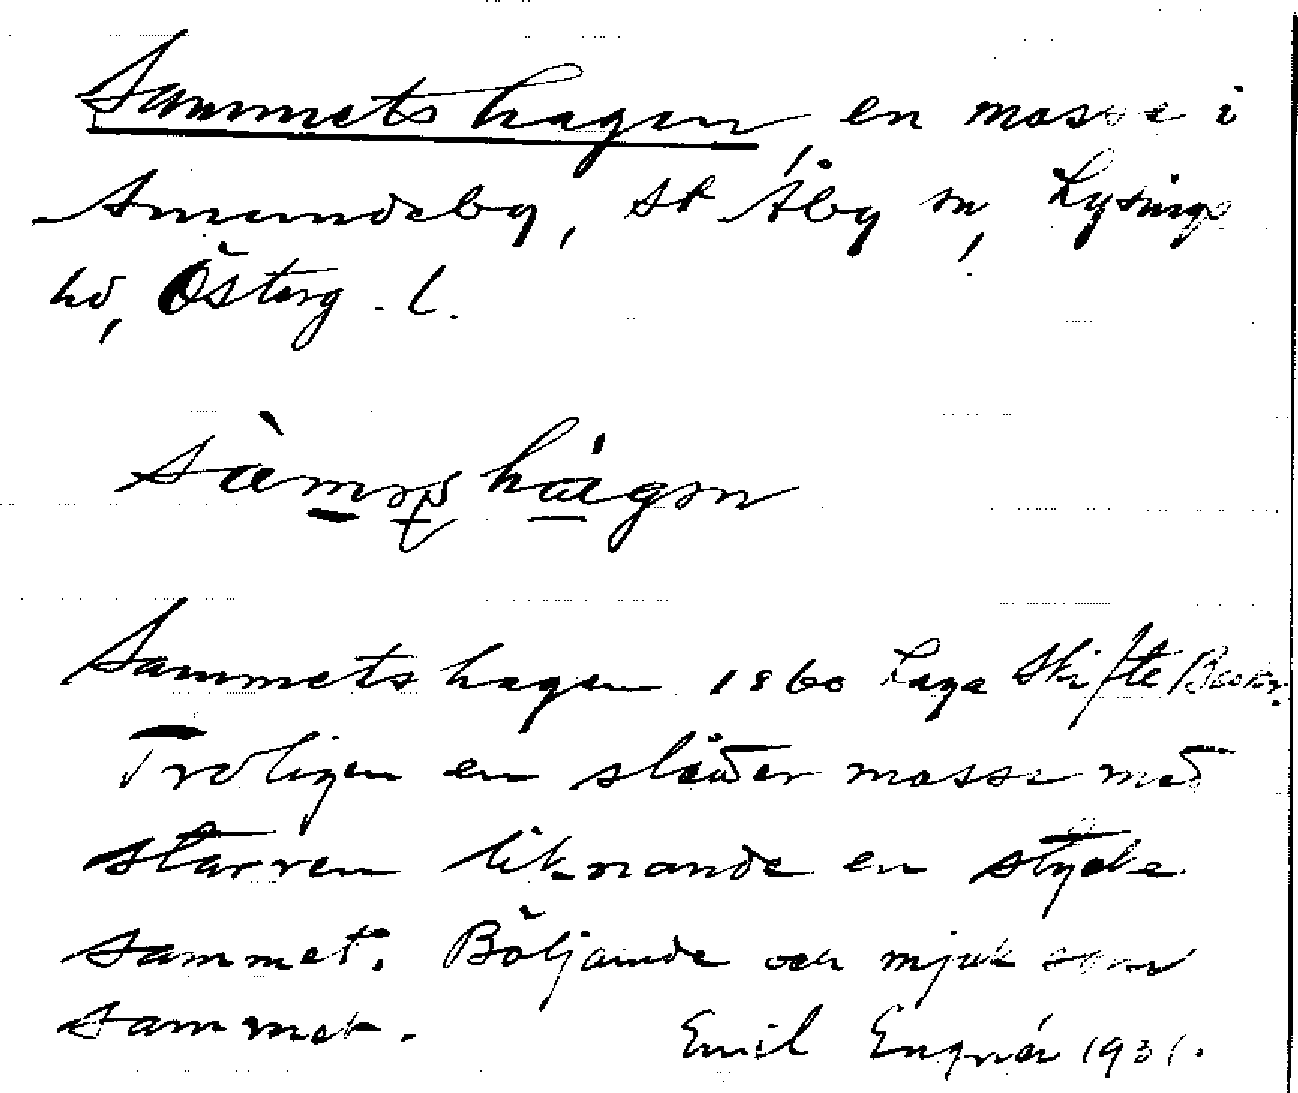 Sammetshagen, en mosse i
Amundeby, St Åby sn, Lysings
hd, Österg. l.
Sammetshagen 1860 Laga Skifte Beskr.
Troligen en slåtter mosse med
starren liknande en stycke
sammet. Böljande och mjuk som
sammet. Emil Engnér 1931.